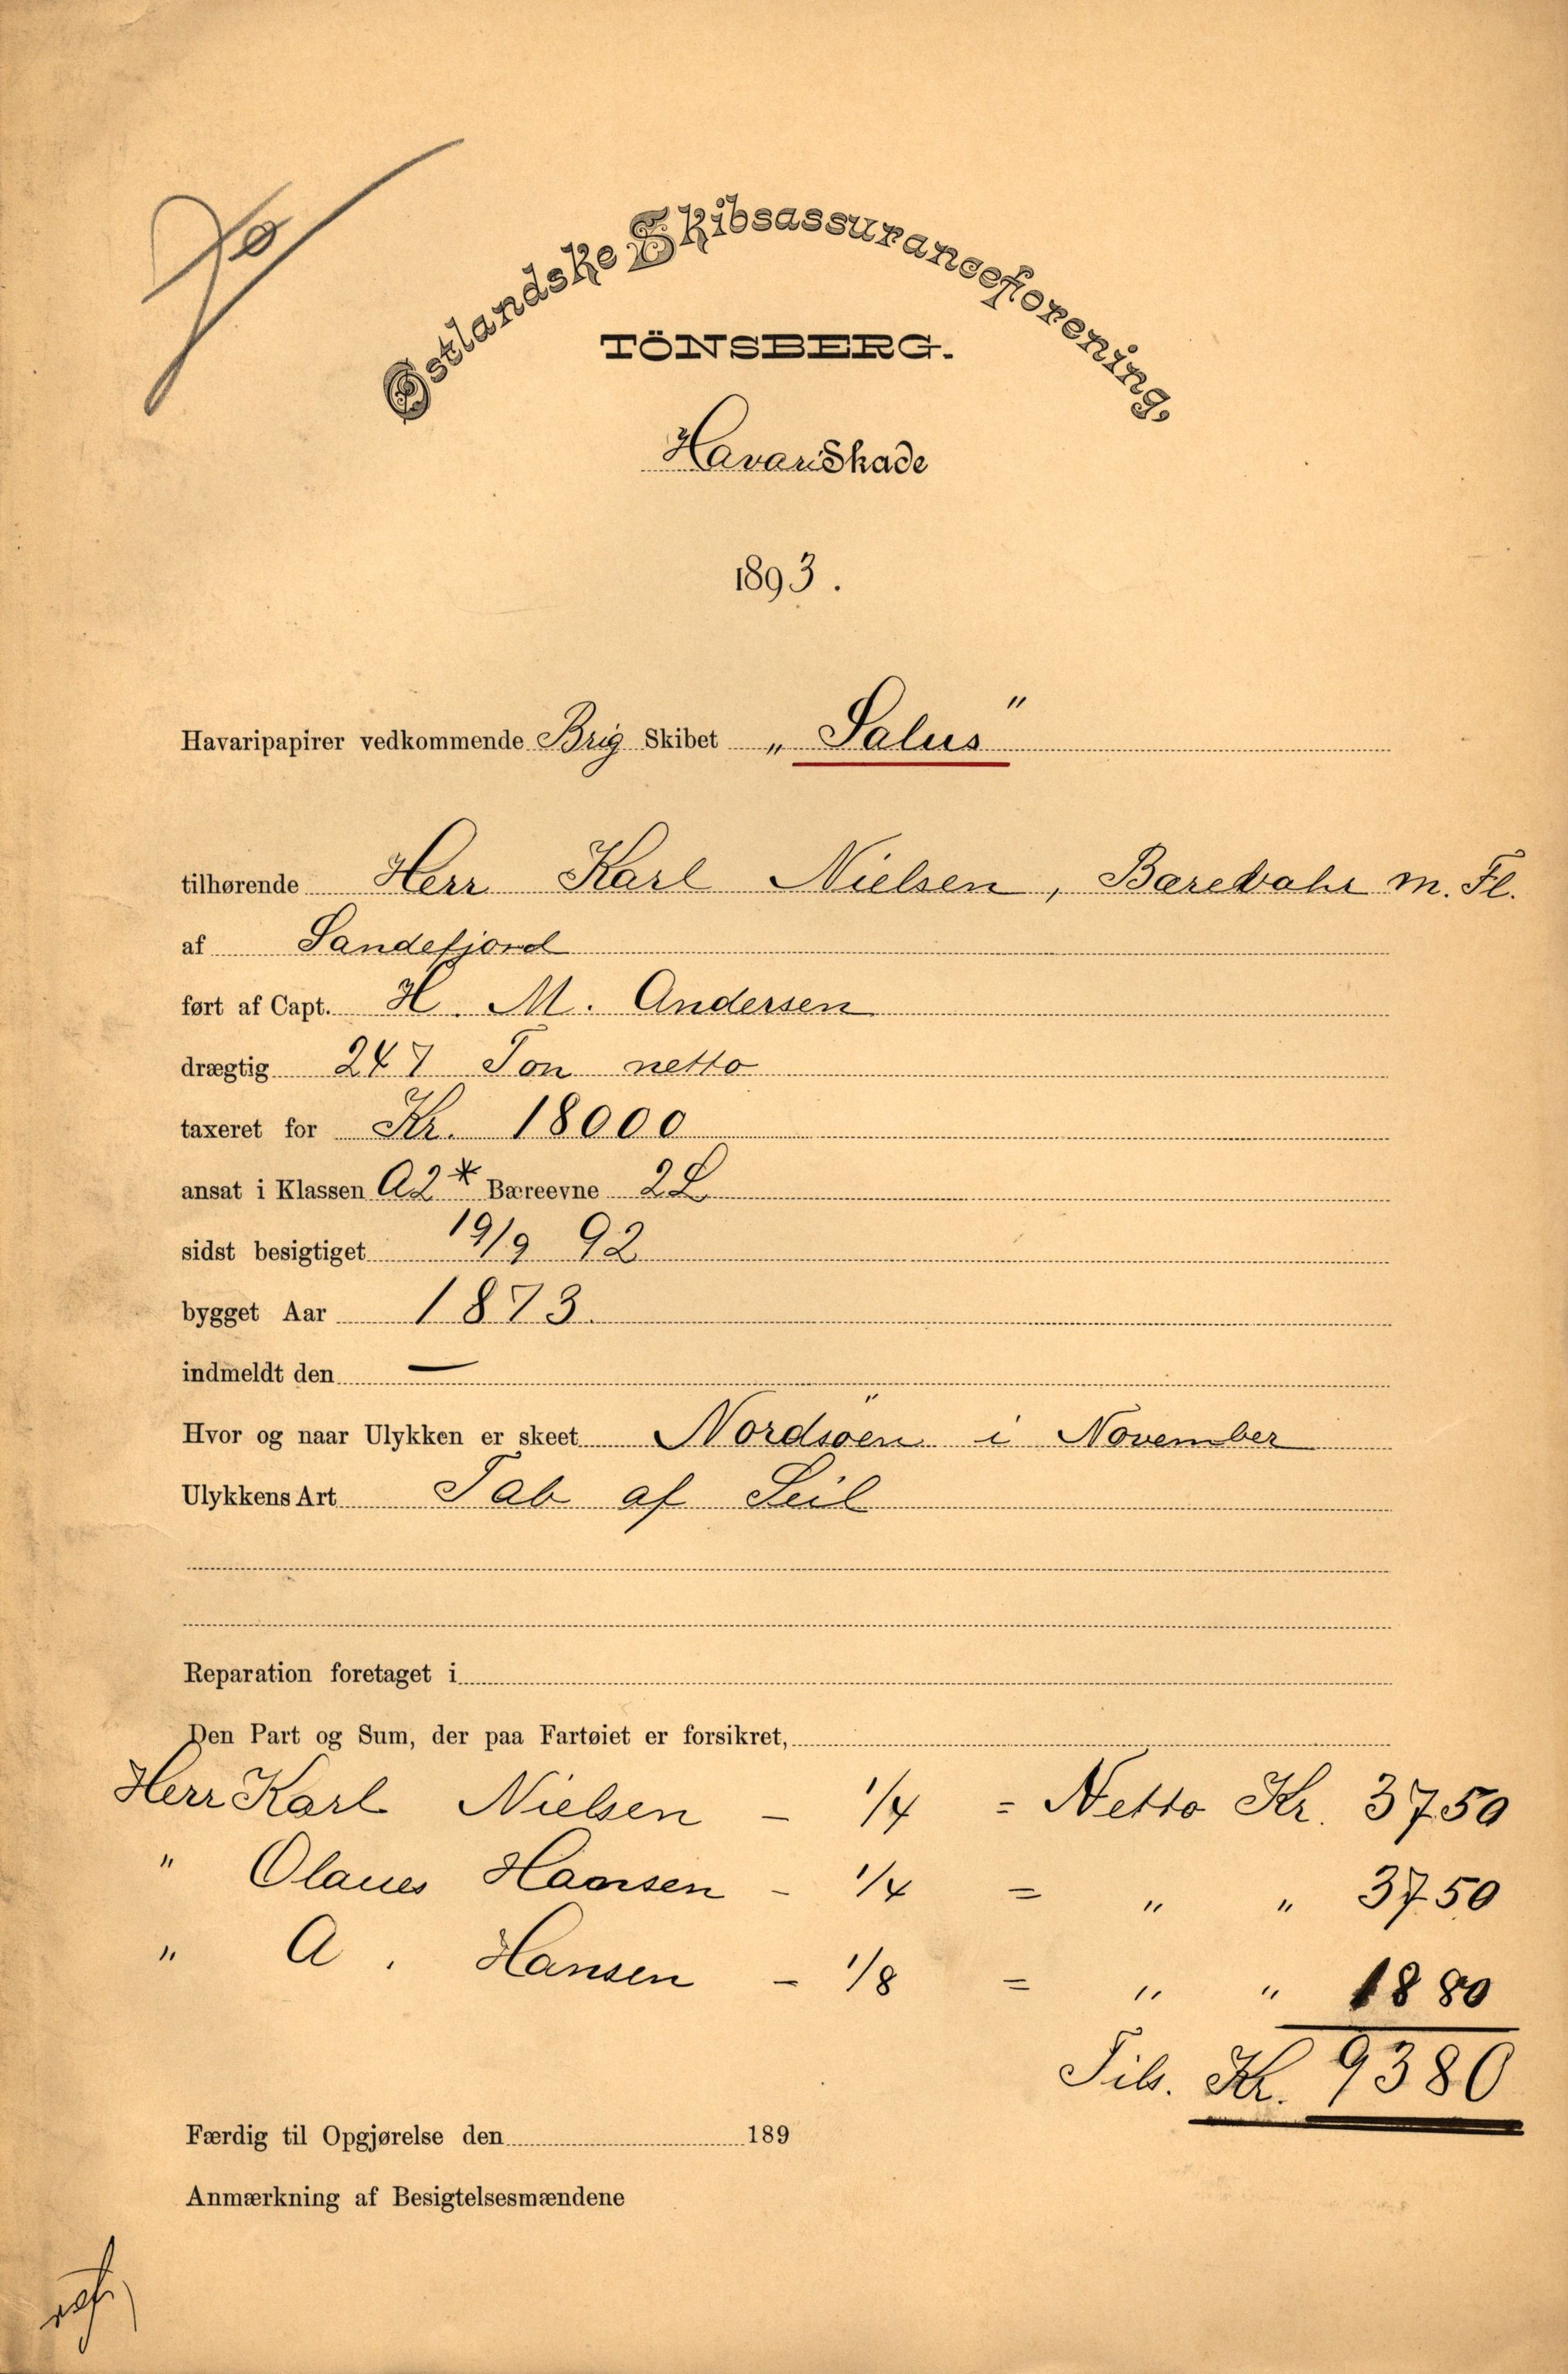 Østlandske Skibsassuranceforening,
TÖNSBERG.
HavariSkade
1893.
Havaripapirer vedkommende Brig Skibet „Salus"
tilhørende Herr Karl Nielsen, m. Fl.
af Sandefjord
ført af Capt. H. M. Andersen
drægtig 247 Ton netto
taxeret for Kr. 18000
ansat i Klassen A2* Bæreevne 2L
sidst besigtiget 19/9 92
bygget Aar 1873.
indmeldt den —
Hvor og naar Ulykken er skeet Nordsöen i November
Ulykkens Art Tab af Seil
Reparation foretaget i
Den Part og Sum, der paa Fartøiet er forsikret,
Herr Karl Nielsen - 1/4 = Netto Kr. 3750
" Olaues Hansen - 1/4 = " " 3750
" A. Hansen - 1/8 = " " 1880
Tils. Kr. 9380
Færdig til Opgjørelse den 189
Anmærkning af Besigtelsesmændene